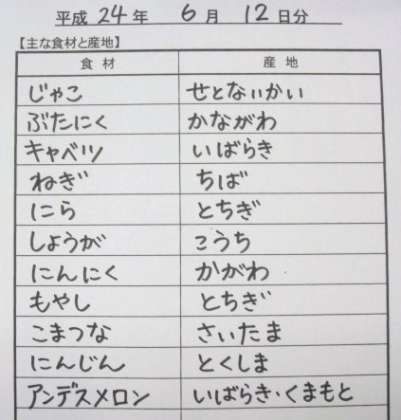 平成 24 年 6 月 12 日分
【主な食材と産地】
食材 産地
じゃこ せとないかい
ぶたにく かながわ
キャベツ いばらき
ねぎ ちば
にら とちぎ
しょうが こうち
にんにく かがわ
もやし とちぎ
こまつな さいたま
にんじん とくしま
アンデスメロン いばらき・くまもと